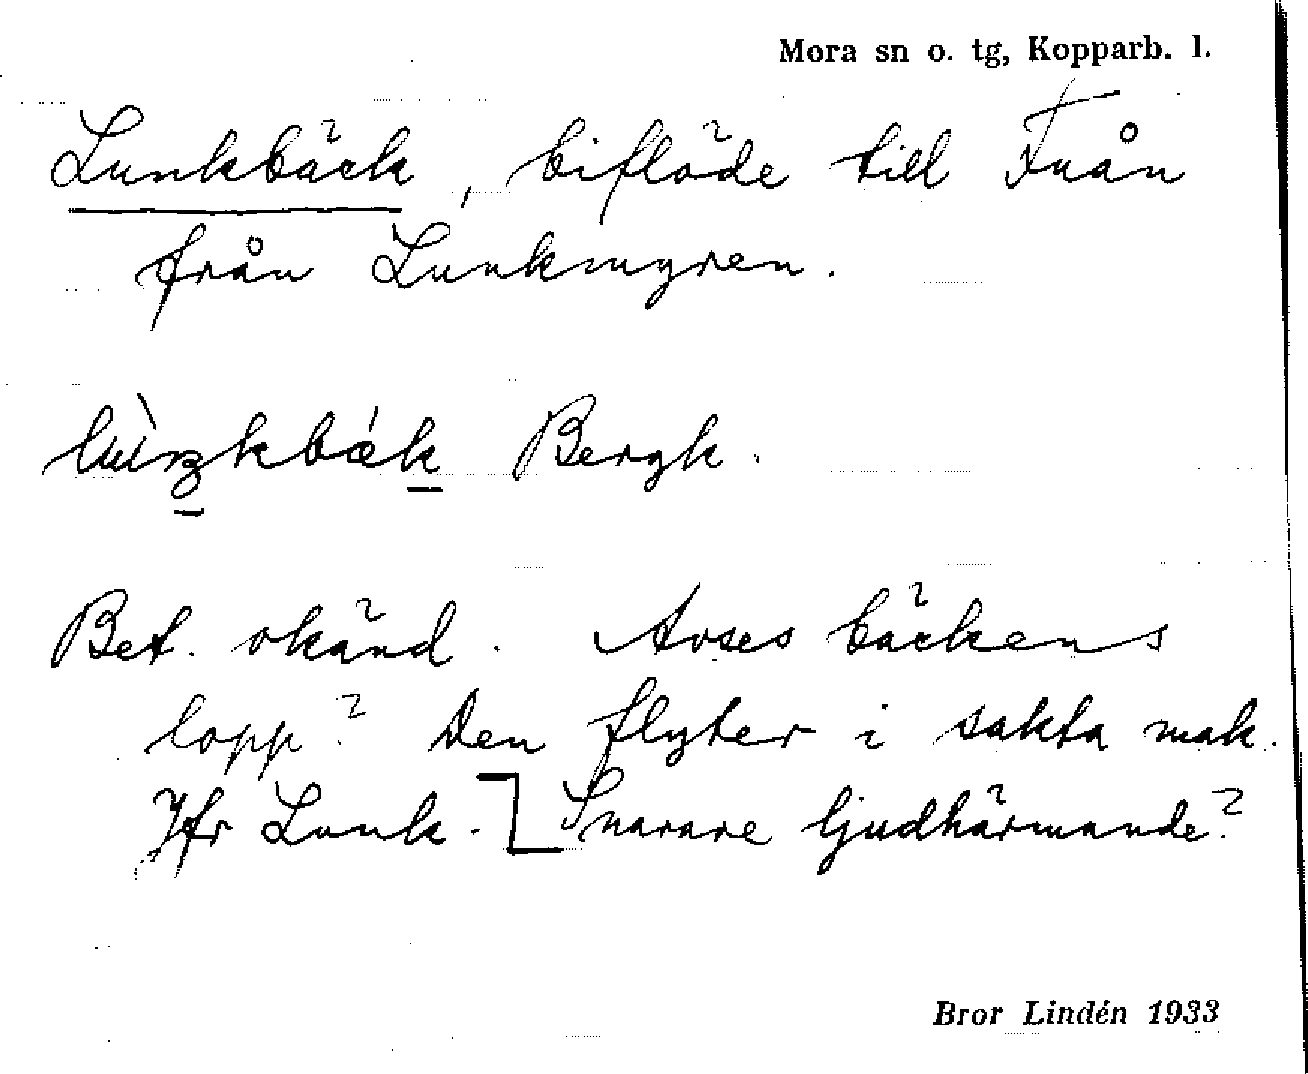 Mora sn o. tg, Kopparb. l.
Lunkbäck, biflöde till Fuån
från Lunkmyren.
Bergk.
Bet. okänd. Avses bäckens
lopp? Den flyter i sakta mak.
Jfr Lunk-] Snarare ljudhärmande?
Bror Lindén 1933